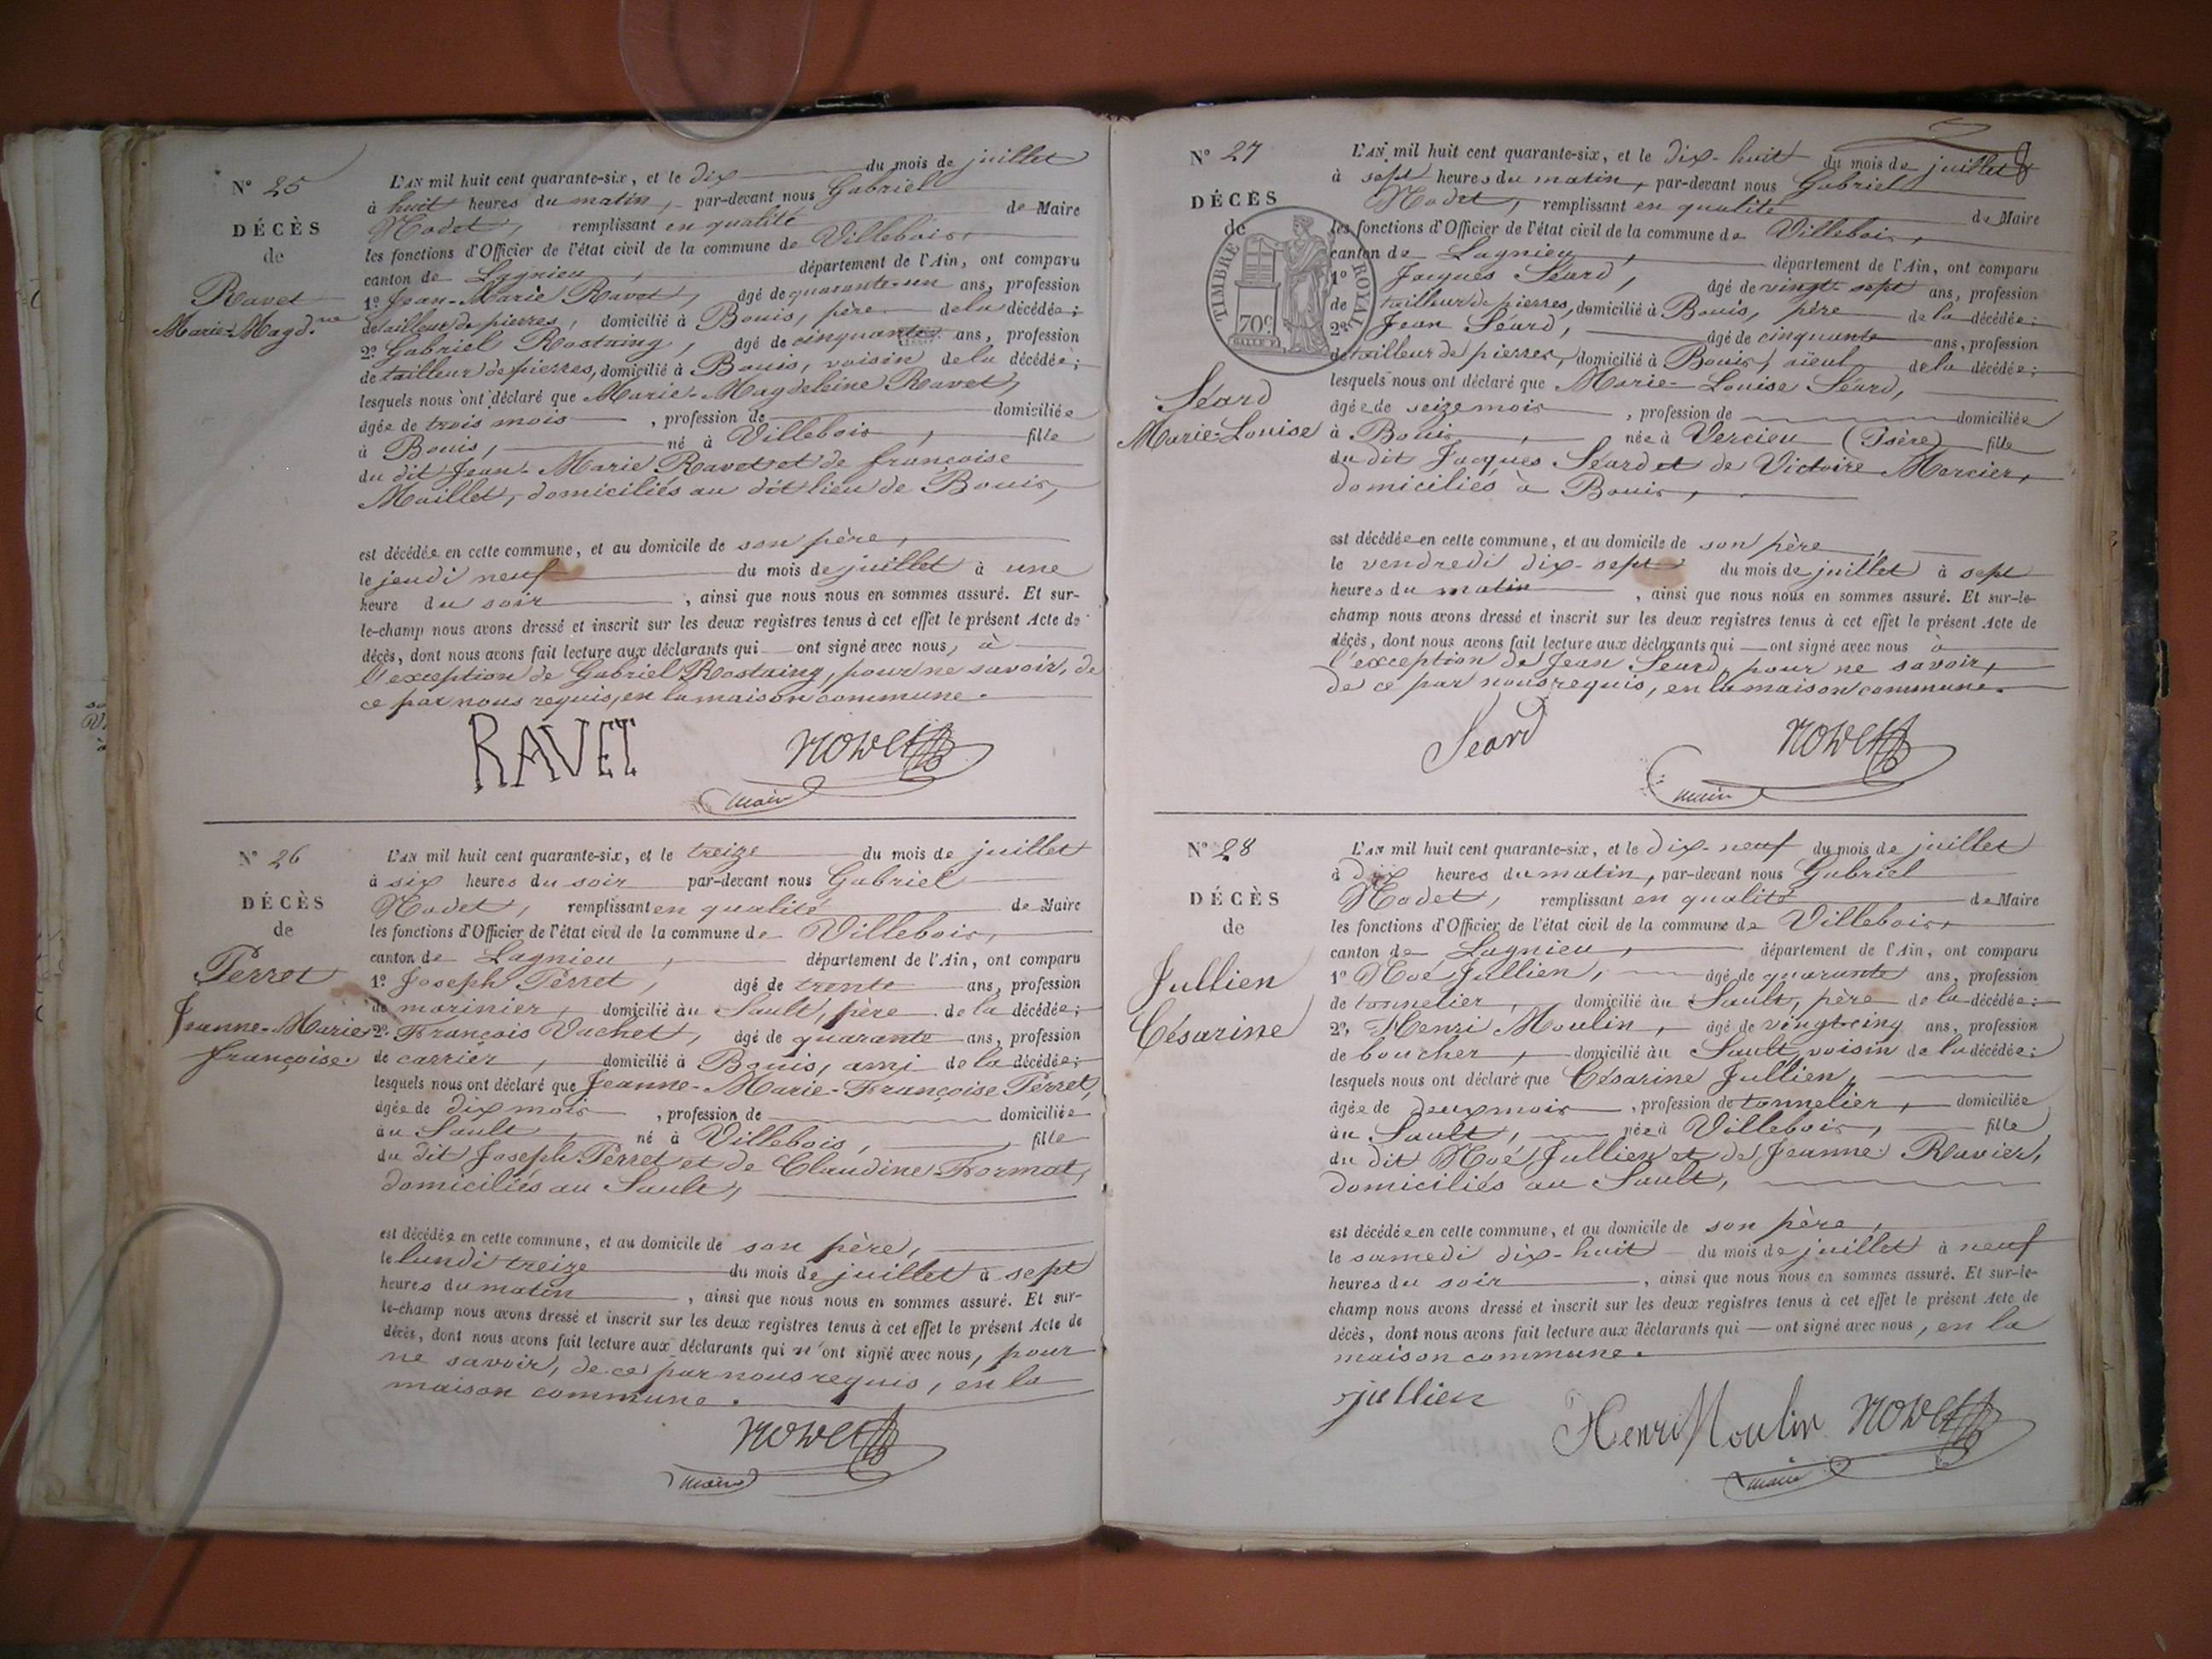 N° 25
DÉCÈS
de
Ravet
Marie-Magd.ne
L'AN mil huit cent quarante-six, et le dix du mois de juillet
à huit heures du matin, par-devant nous Gabriel
Nodet, remplissant en qualité de Maire
les fonctions d'Officier de l'état civil de la commune de Villebois,
canton de Lagnieu, département de l'Ain, ont comparu
1° Jean-Marie Ravet, âgé de quarante-un ans, profession
de tailleur de pierres, domicilié à Bouis, père de la décédée;
2° Gabriel Rostaing, âgé de cinquante ans, profession
de tailleur de pierres, domicilié à Bouis, voisin de la décédée;
lesquels nous ont déclaré que Marie-Magdeleine Ravet,
âgée de trois mois, profession de domiciliée
à Bouis, né à Villebois, fille
du dit Jean-Marie Ravet et de françoise
Maillet, domiciliés au dit lieu de Bouis,
est décédée en cette commune, et au domicile de son père,
le jeudi neuf du mois de juillet à une
heure du soir, ainsi que nous nous en sommes assuré. Et sur-
le-champ nous avons dressé et inscrit sur les deux registres tenus à cet effet le présent Acte de
décès, dont nous avons fait lecture aux déclarants qui ont signé avec nous, à
l'exception de Gabriel Rostaing, pour ne savoir, de
ce par nous requis, en la maison commune.
RAVET NODET
maire
N° 26
DÉCÈS
de
Perret
Jeanne-Marie
françoise.
L'AN mil huit cent quarante-six, et le treize du mois de juillet
à six heures du soir par-devant nous Gabriel
Nodet, remplissant en qualité de Maire
les fonctions d'Officier de l'état civil de la commune de Villebois,
canton de Lagnieu, département de l'Ain, ont comparu
1° Joseph Perret, âgé de trente ans, profession
de marinier, domicilié au Sault, père de la décédée;
2° François Vachet, âgé de quarante ans, profession
de carrier, domicilié à Bouis, ami de la décédée;
lesquels nous ont déclaré que Jeanne-Marie-Françoise Perret,
âgée de dix mois, profession de domiciliée
au Sault, né à Villebois, fille
du dit Joseph Perret et de Claudine Format,
domiciliés au Sault,
est décédée en cette commune, et au domicile de son père,
le lundi treize du mois de juillet à sept
heures du matin, ainsi que nous nous en sommes assuré. Et sur-
le-champ nous avons dressé et inscrit sur les deux registres tenus à cet effet le présent Acte de
décès, dont nous avons fait lecture aux déclarants qui n'ont signé avec nous, pour
ne savoir, de ce par nous requis, en la
maison commune.
NODET
maire
N° 27
DÉCÈS
de
TIMBRE ROYAL
70c
Séard
Marie-Louise
L'AN mil huit cent quarante-six, et le dix-huit du mois de juillet
à sept heures du matin, par-devant nous Gabriel
Nodet, remplissant en qualité de Maire
les fonctions d'Officier de l'état civil de la commune de Villebois,
canton de Lagnieu, département de l'Ain, ont comparu
1° Jacques Séard, âgé de vingt-sept ans, profession
de tailleur de pierres, domicilié à Bouis, père de la décédée;
2° Jean Séard, âgé de cinquante ans, profession
de tailleur de pierres, domicilié à Bouis, aïeul de la décédée;
lesquels nous ont déclaré que Marie-Louise Séard,
âgée de seize mois, profession de domiciliée
à Bouis, née à Vercieu (Isère) fille
du dit Jacques Séard et de Victoire Mercier,
domiciliés à Bouis,
est décédée en cette commune, et au domicile de son père,
le vendredi dix-sept du mois de juillet à sept
heures du matin, ainsi que nous nous en sommes assuré. Et sur-le-
champ nous avons dressé et inscrit sur les deux registres tenus à cet effet le présent Acte de
décès, dont nous avons fait lecture aux déclarants qui ont signé avec nous à
l'exception de Jean Seard, pour ne savoir,
de ce par nous requis, en la maison commune.
Seard NODET
maire
N° 28
DÉCÈS
de
Jullien
Césarine
L'AN mil huit cent quarante-six, et le dix-neuf du mois de juillet
à dix heures du matin, par-devant nous Gabriel
Nodet, remplissant en qualité de Maire
les fonctions d'Officier de l'état civil de la commune de Villebois,
canton de Lagnieu, département de l'Ain, ont comparu
1° Noé Jullien, âgé de quarante ans, profession
de tonnelier, domicilié au Sault, père de la décédée;
2°, Henri Moulin, âgé de vingt-cinq ans, profession
de boucher, domicilié au Sault, voisin de la décédée;
lesquels nous ont déclaré que Césarine Jullien,
âgée de deux mois, profession de tonnelier, domiciliée
au Sault, née à Villebois, fille
du dit Noé Jullien et de Jeanne Ravier,
domiciliés au Sault,
est décédée en cette commune, et au domicile de son père,
le samedi dix-huit du mois de juillet à neuf
heures du soir, ainsi que nous nous en sommes assuré. Et sur-le-
champ nous avons dressé et inscrit sur les deux registres tenus à cet effet le présent Acte de
décès, dont nous avons fait lecture aux déclarants qui ont signé avec nous, en la
maison commune.
jullien Henri Moulin NODET
maire